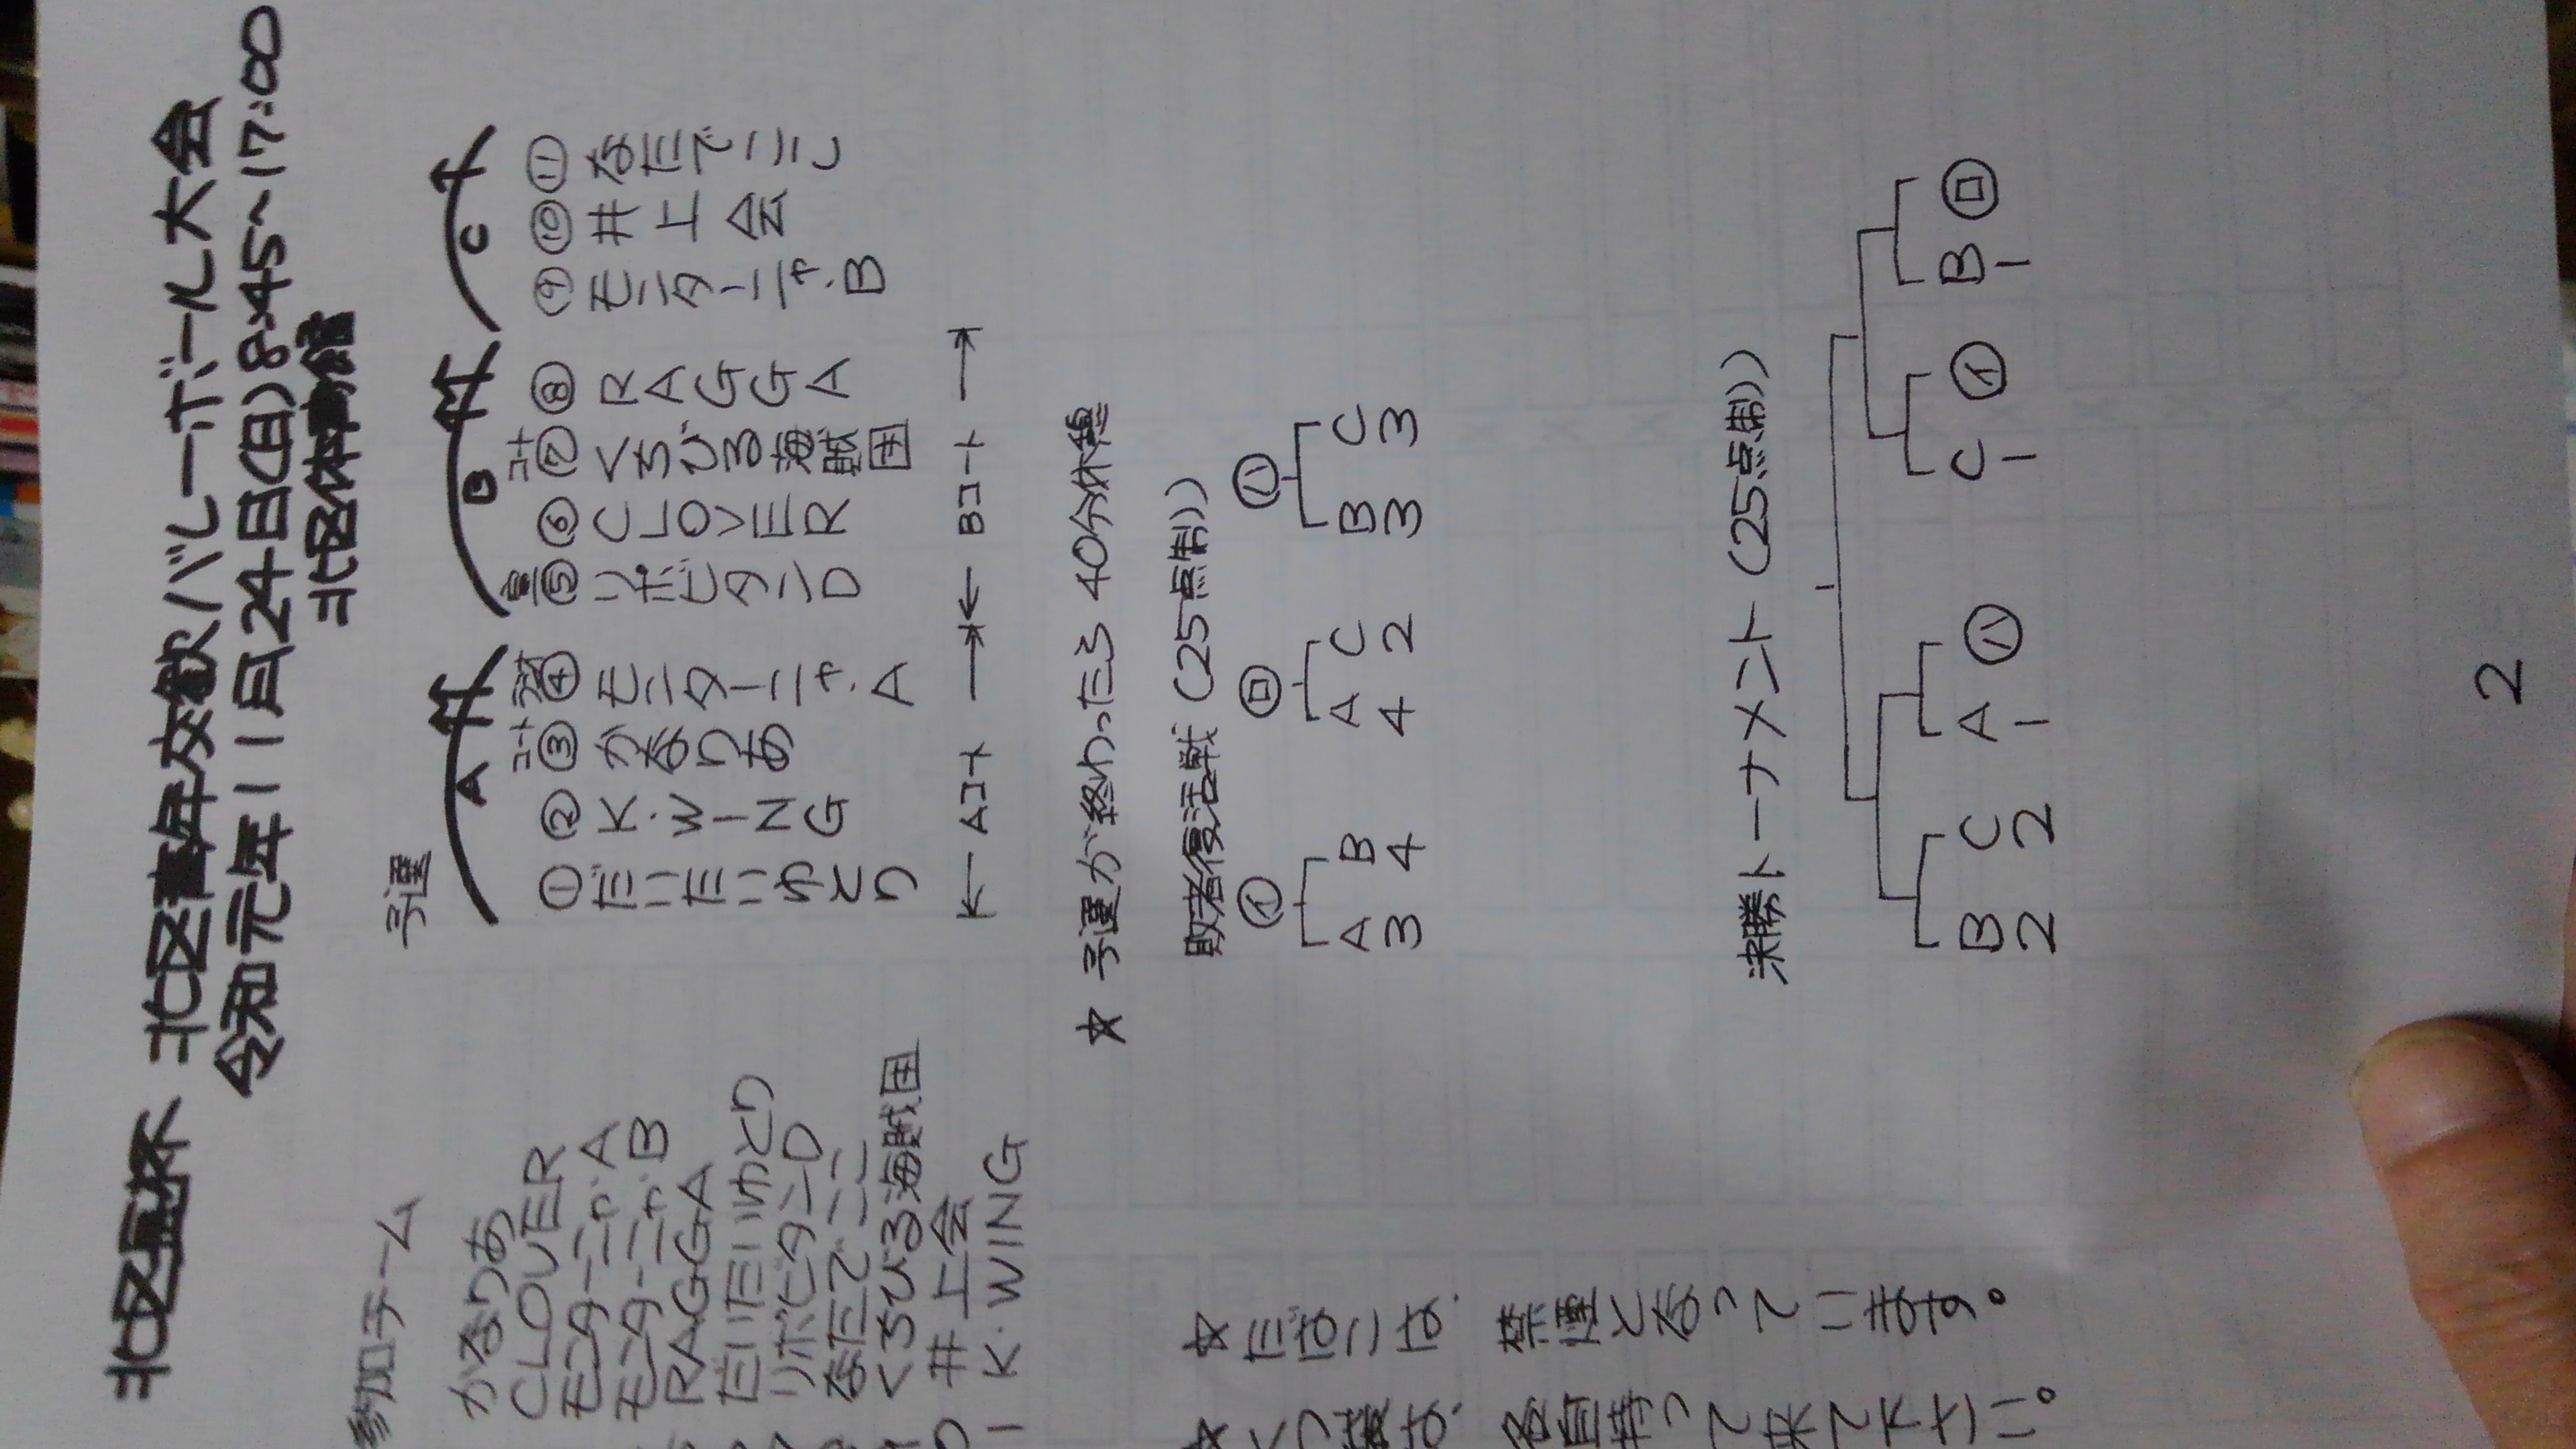 北区長杯 北区青年交歓バレーボール大会
令和元年11月24日(日) 8:45~17:00
北区体育館
参加チーム
かなりあ
CLOVER
モンターニャA
モンターニャB
RAGGA
だいたいゆとり
リポビタンD
なたでここ
くちびる海賊団
井上会
K・WING
予選
A
B
C
① だいたいゆとり
② K・WING
コート ③ かなりあ
④ モンターニャ・A
⑤ リポビタンD
⑥ CLOVER
コート ⑦ くちびる海賊団
⑧ RAGGA
⑨ モンターニャ・B
⑩ 井上会
⑪ なたでここ
← Aコート → ← Bコート →
☆ 予選が終わったら 40分休憩
敗者復活戦 (25点制)
イ ロ ハ
A3 B4 A4 C2 B3 C3
決勝トーナメント (25点制)
B2 C2 A1 ハ C1 イ B1 ロ
☆ たばこは、禁煙となっています。
持って来て下さい。
2